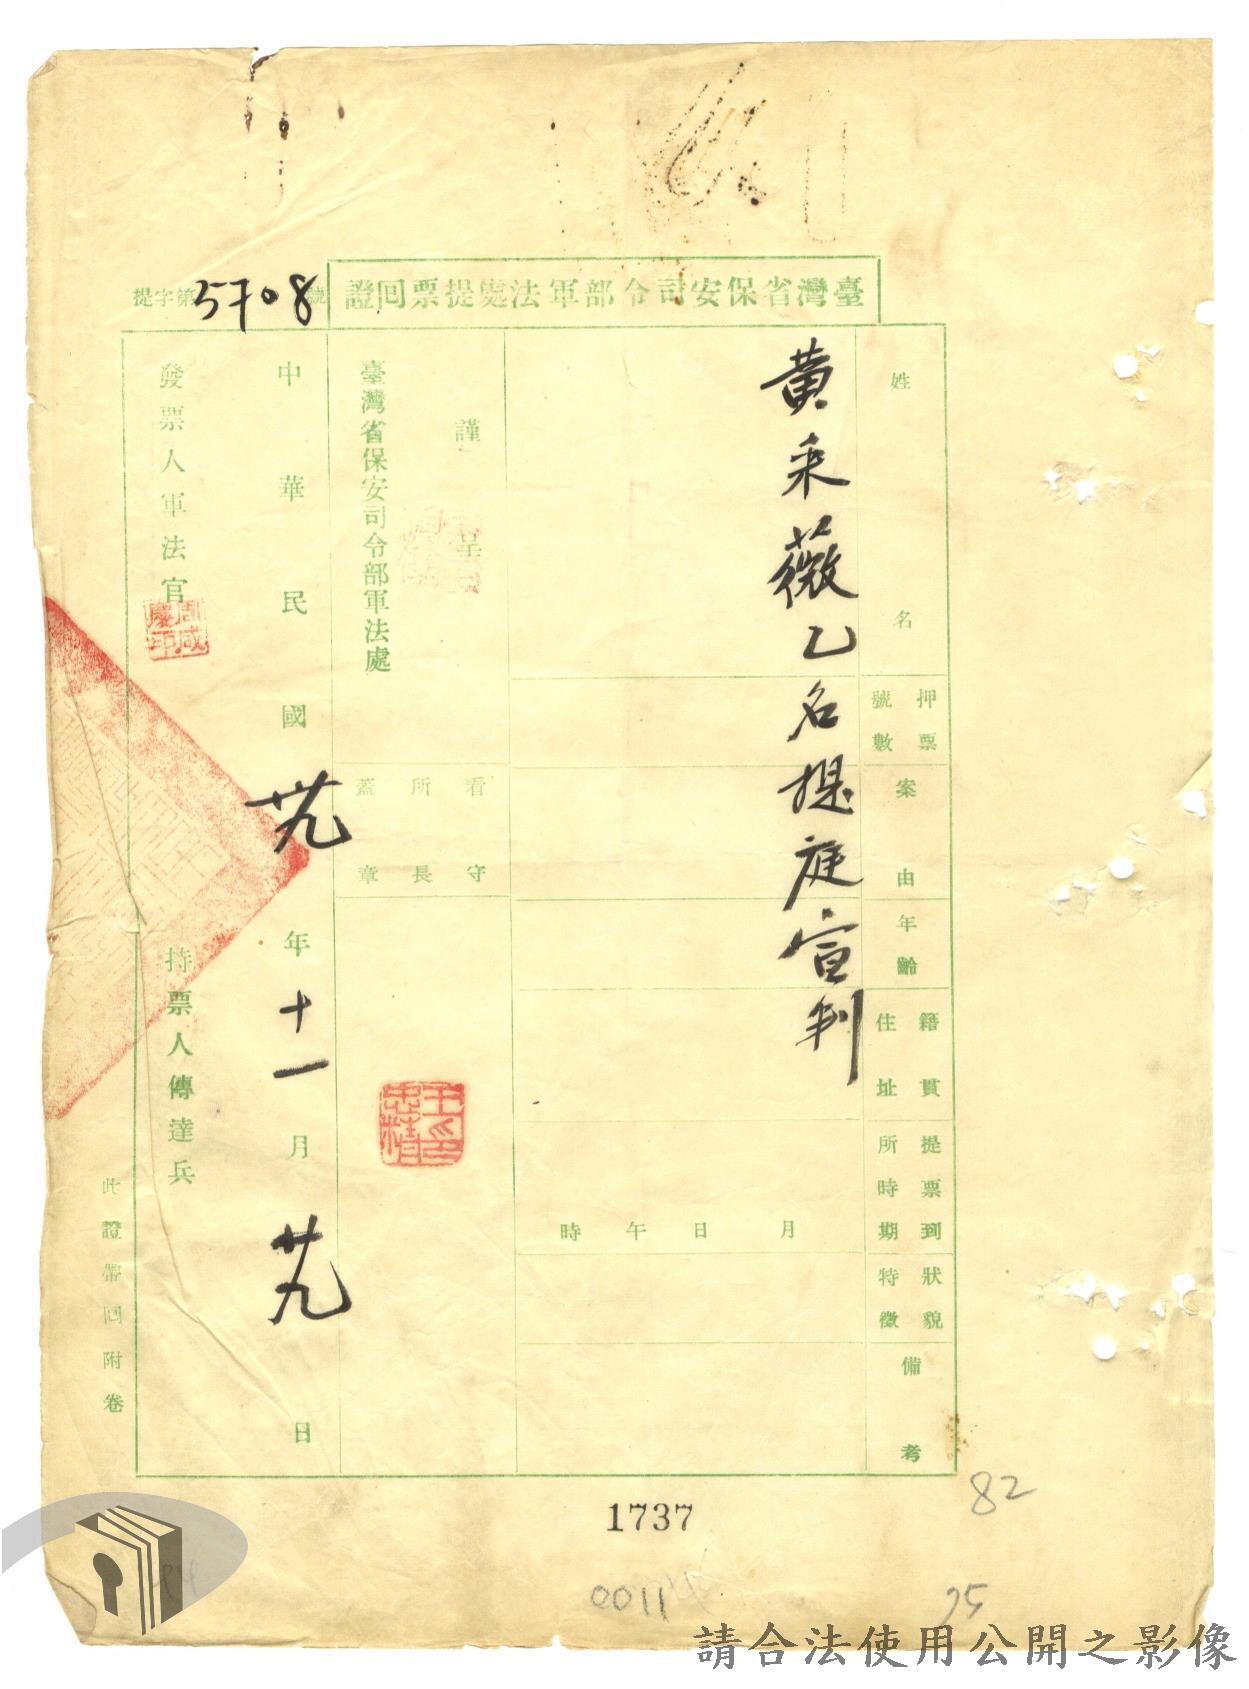 臺灣省保安司令部軍法處提票回證
提字第5708號
姓名
押票號數
案由
年齡
籍貫住址
提票到所時期
狀貌特徵
備考
黃采薇乙名提庭宣判
月日午時
謹呈
臺灣省保安司令部軍法處
看守所所長蓋章
王忠精印
中華民國卅九年十一月廿九日
發票人軍法官
周咸慶印
持票人傳達兵
此證帶回附卷
1737
82
0011
25
請合法使用公開之影像